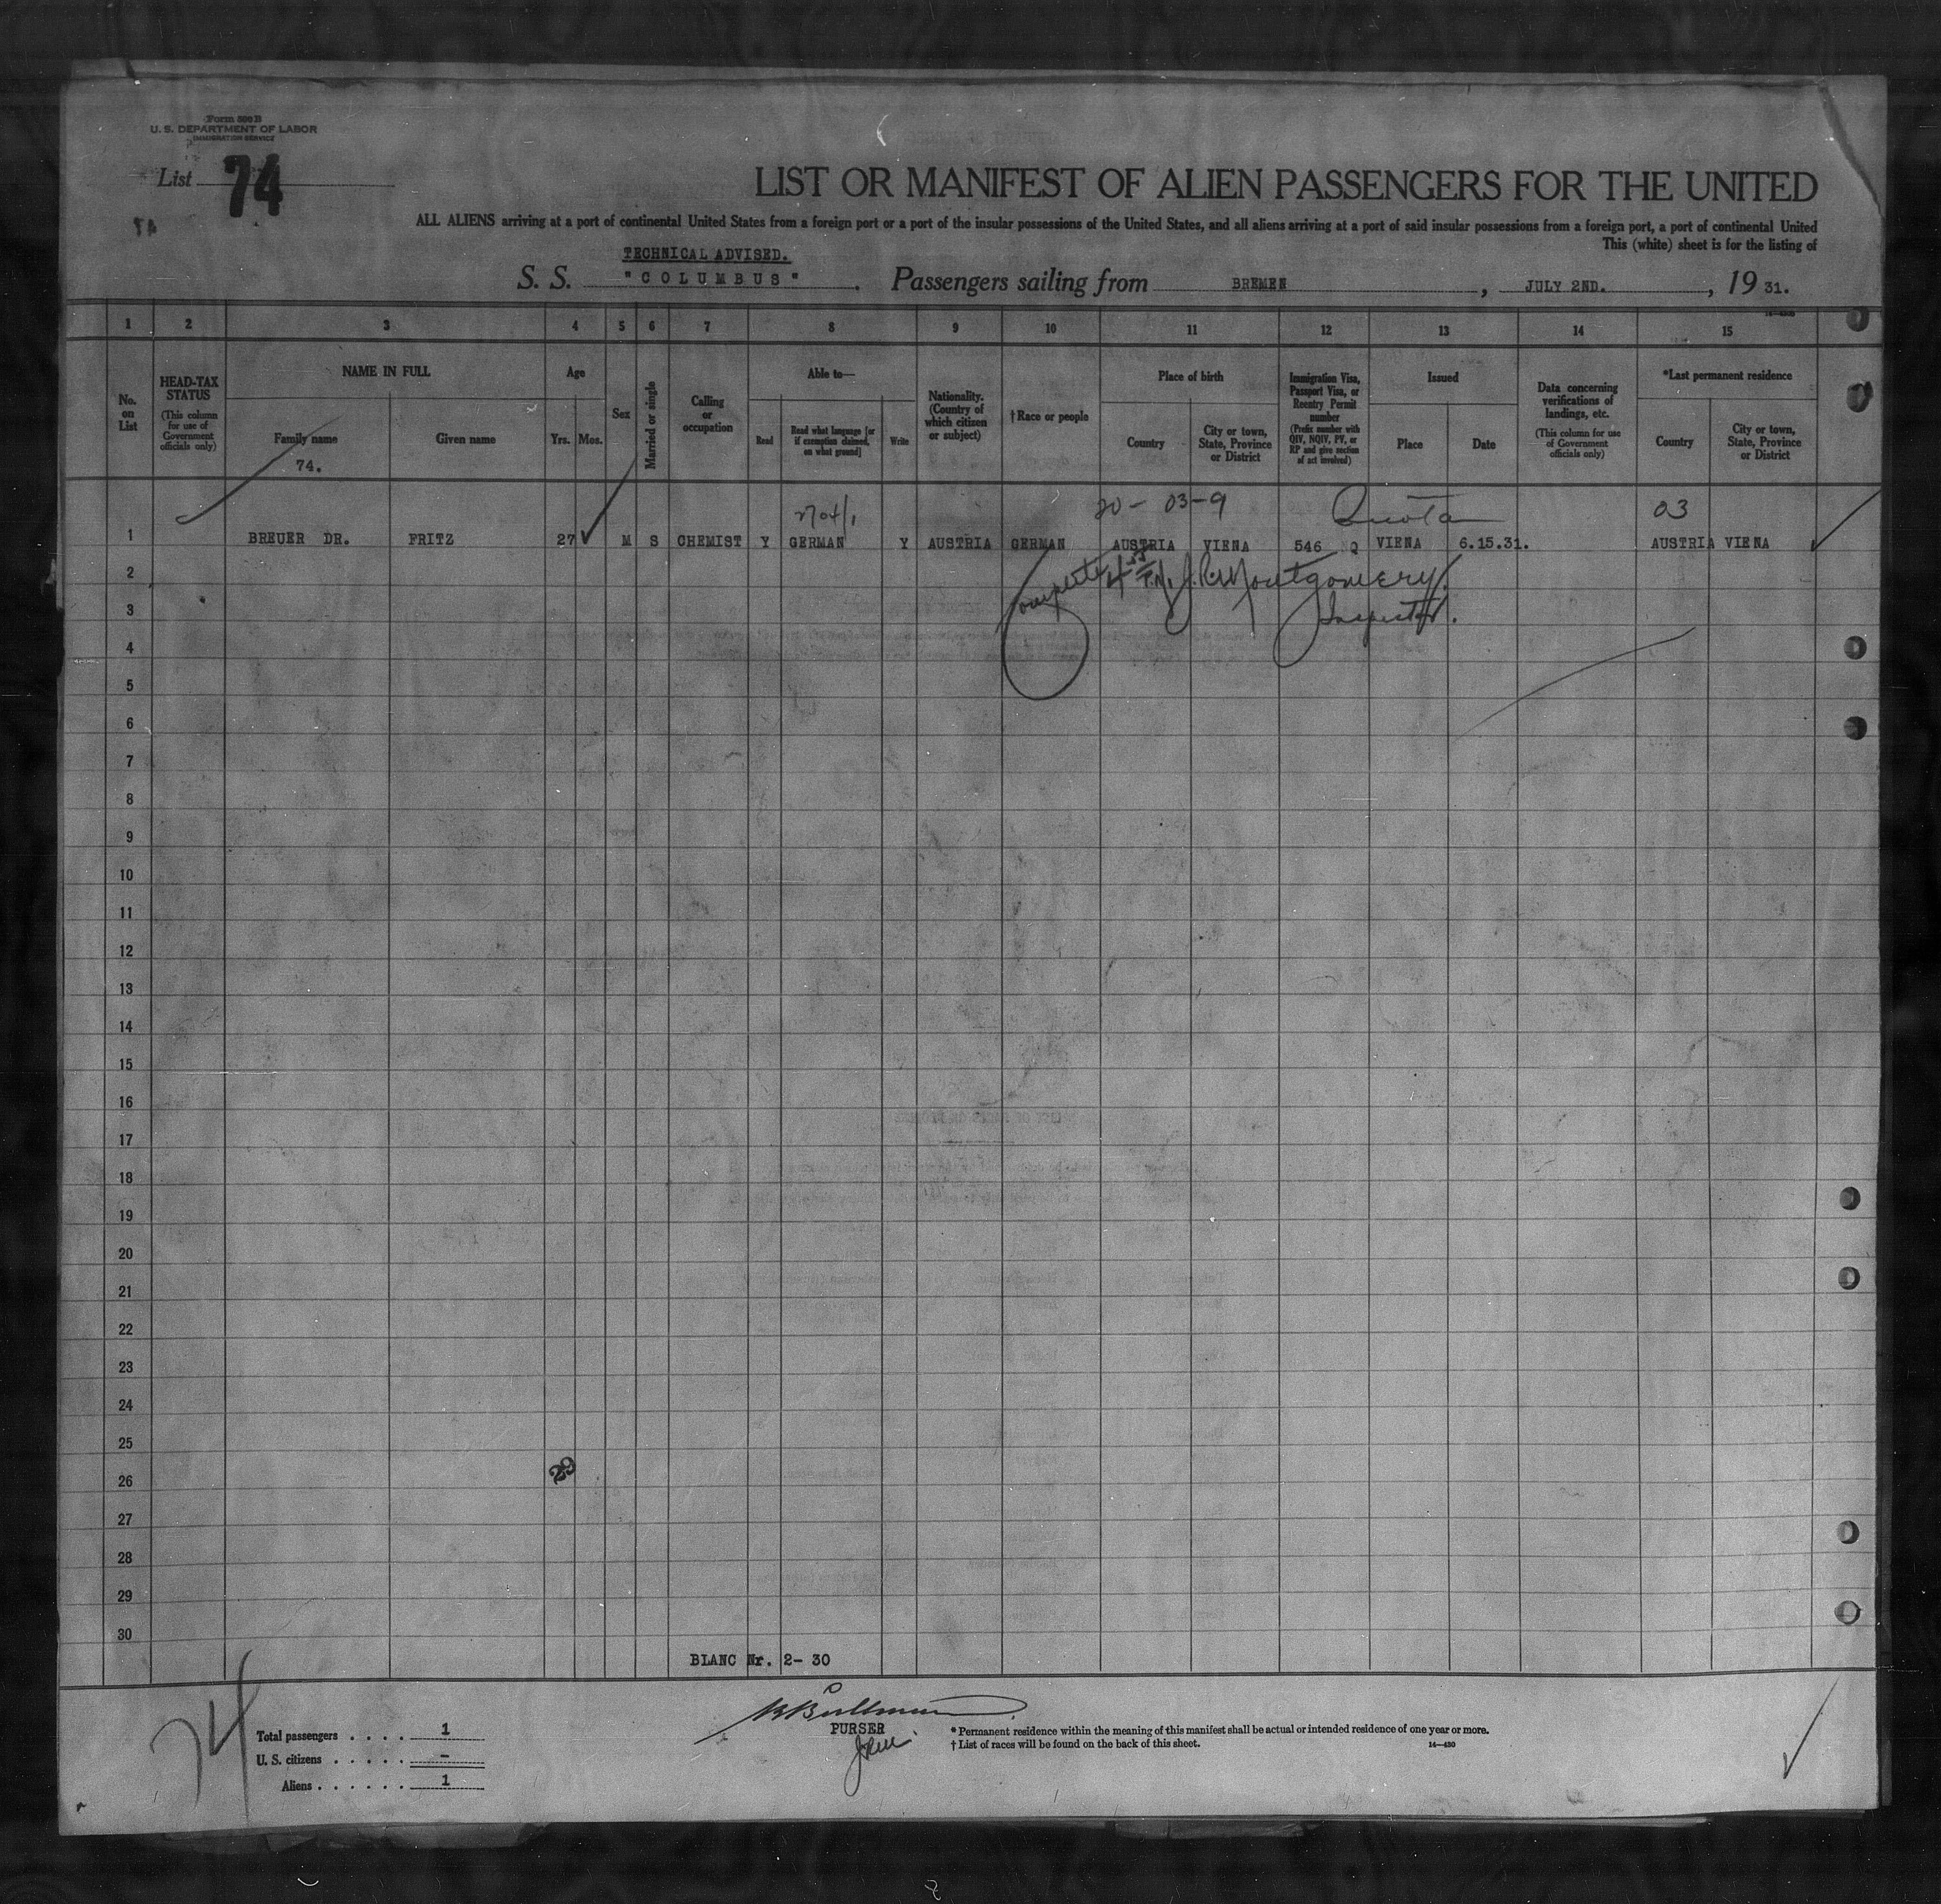 Form 500 B
U. S. DEPARTMENT OF LABOR
IMMIGRATION SERVICE
List 74
LIST OR MANIFEST OF ALIEN PASSENGERS FOR THE UNITED
ALL ALIENS arriving at a port of continental United States from a foreign port or a port of the insular possessions of the United States, and all aliens arriving at a port of said insular possessions from a foreign port, a port of continental United
This (white) sheet is for the listing of
TECHNICAL ADVISED.
S. S. "COLUMBUS". Passengers sailing from BREMEN, JULY 2ND., 19 31.
1 2 3 4 5 6 7 8 9 10 11 12 13 14 15
No. on List
HEAD-TAX STATUS
(This column for use of Government officials only)
NAME IN FULL
Family name
74.
Given name
Age
Yrs. Mos.
Sex
Married or single
Calling or occupation
Able to—
Read
Read what language [or if exemption claimed, on what ground]
Write
Nationality. (Country of which citizen or subject)
†Race or people
Place of birth
Country
City or town, State, Province or District
Immigration Visa, Passport Visa, or Reentry Permit number
(Prefix number with QIV, NQIV, PV, or RP and give section of act involved)
Issued
Place
Date
Data concerning verifications of landings, etc.
(This column for use of Government officials only)
*Last permanent residence
Country
City or town, State, Province or District
20 - 03-9 Quota 03
1 BREUER DR. FRITZ 27 M S CHEMIST Y GERMAN Y AUSTRIA GERMAN AUSTRIA VIENA 546 Q VIENA 6.15.31. AUSTRIA VIENA
2 J. R. Montgomery
3 Inspector.
4
5
6
7
8
9
10
11
12
13
14
15
16
17
18
19
20
21
22
23
24
25
26
27
28
29
30
BLANC Nr. 2- 30
74
Total passengers . . . . 1
U. S. citizens . . . . . –
Aliens . . . . . . 1
PURSER
* Permanent residence within the meaning of this manifest shall be actual or intended residence of one year or more.
† List of races will be found on the back of this sheet.
14—430